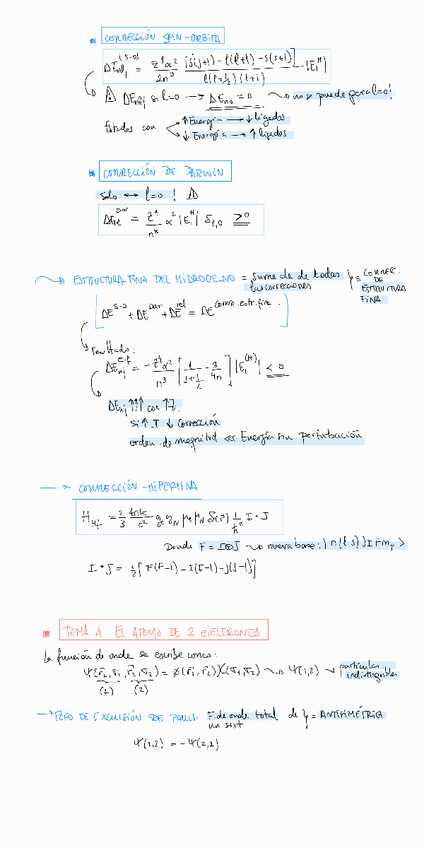 CORRECCIÓN SPIN-ORBITA
ΔE_nlj^(s-o) = Z⁴α²/2n³ [j(j+1) - l(l+1) - s(s+1)] / l(l+½)(l+1) · |E₁^H|
⚠ ΔE_nlj si l=0 → ΔE_n0 = 0 no se puede para l=0!
Estados con ↑Energía → ↓ ligados
↓ Energía → ↑ ligados
CORRECCIÓN DE DARWIN
Solo ↔ l=0 !
ΔE^Dar = Z⁴/n³ α² |E₁^H| δ_l,0 ≥0
ESTRUCTURA FINA DEL HIDRÓGENO = Suma de de todas las correcciones = CORREC. DE ESTRUCTURA FINA
[ΔE^s-o + ΔE^Dar + ΔE^rel = ΔE^correc.estr.fina]
resultado:
ΔE_nj^e.f = - Z⁴α²/n³ [1/(j+½) - 3/4n] |E₁^(H)| < 0
ΔE_nj ↑↑↑ con ↑Z.
si ↑ J ↓ corrección
orden de magnitud << Energía sin perturbación
CORRECCIÓN HIPERFINA
Donde F = I⊕J nueva base: | n(l s)j I F m_F >
I·J = ½[F(F-1) - I(I-1) - j(j-1)]
TEMA 4. EL ÁTOMO DE 2 ELECTRONES
La función de onda se escribe como:
Ψ(r₁,σ₁,r₂,σ₂) = φ(r₁,r₂)χ(σ₁,σ₂) Ψ(1,2) → partículas indistinguibles
(1) (2)
PPIO DE EXCLUSIÓN DE PAULI: F.de onda total de un sist = ANTISIMÉTRICA
Ψ(1,2) = -Ψ(2,1)